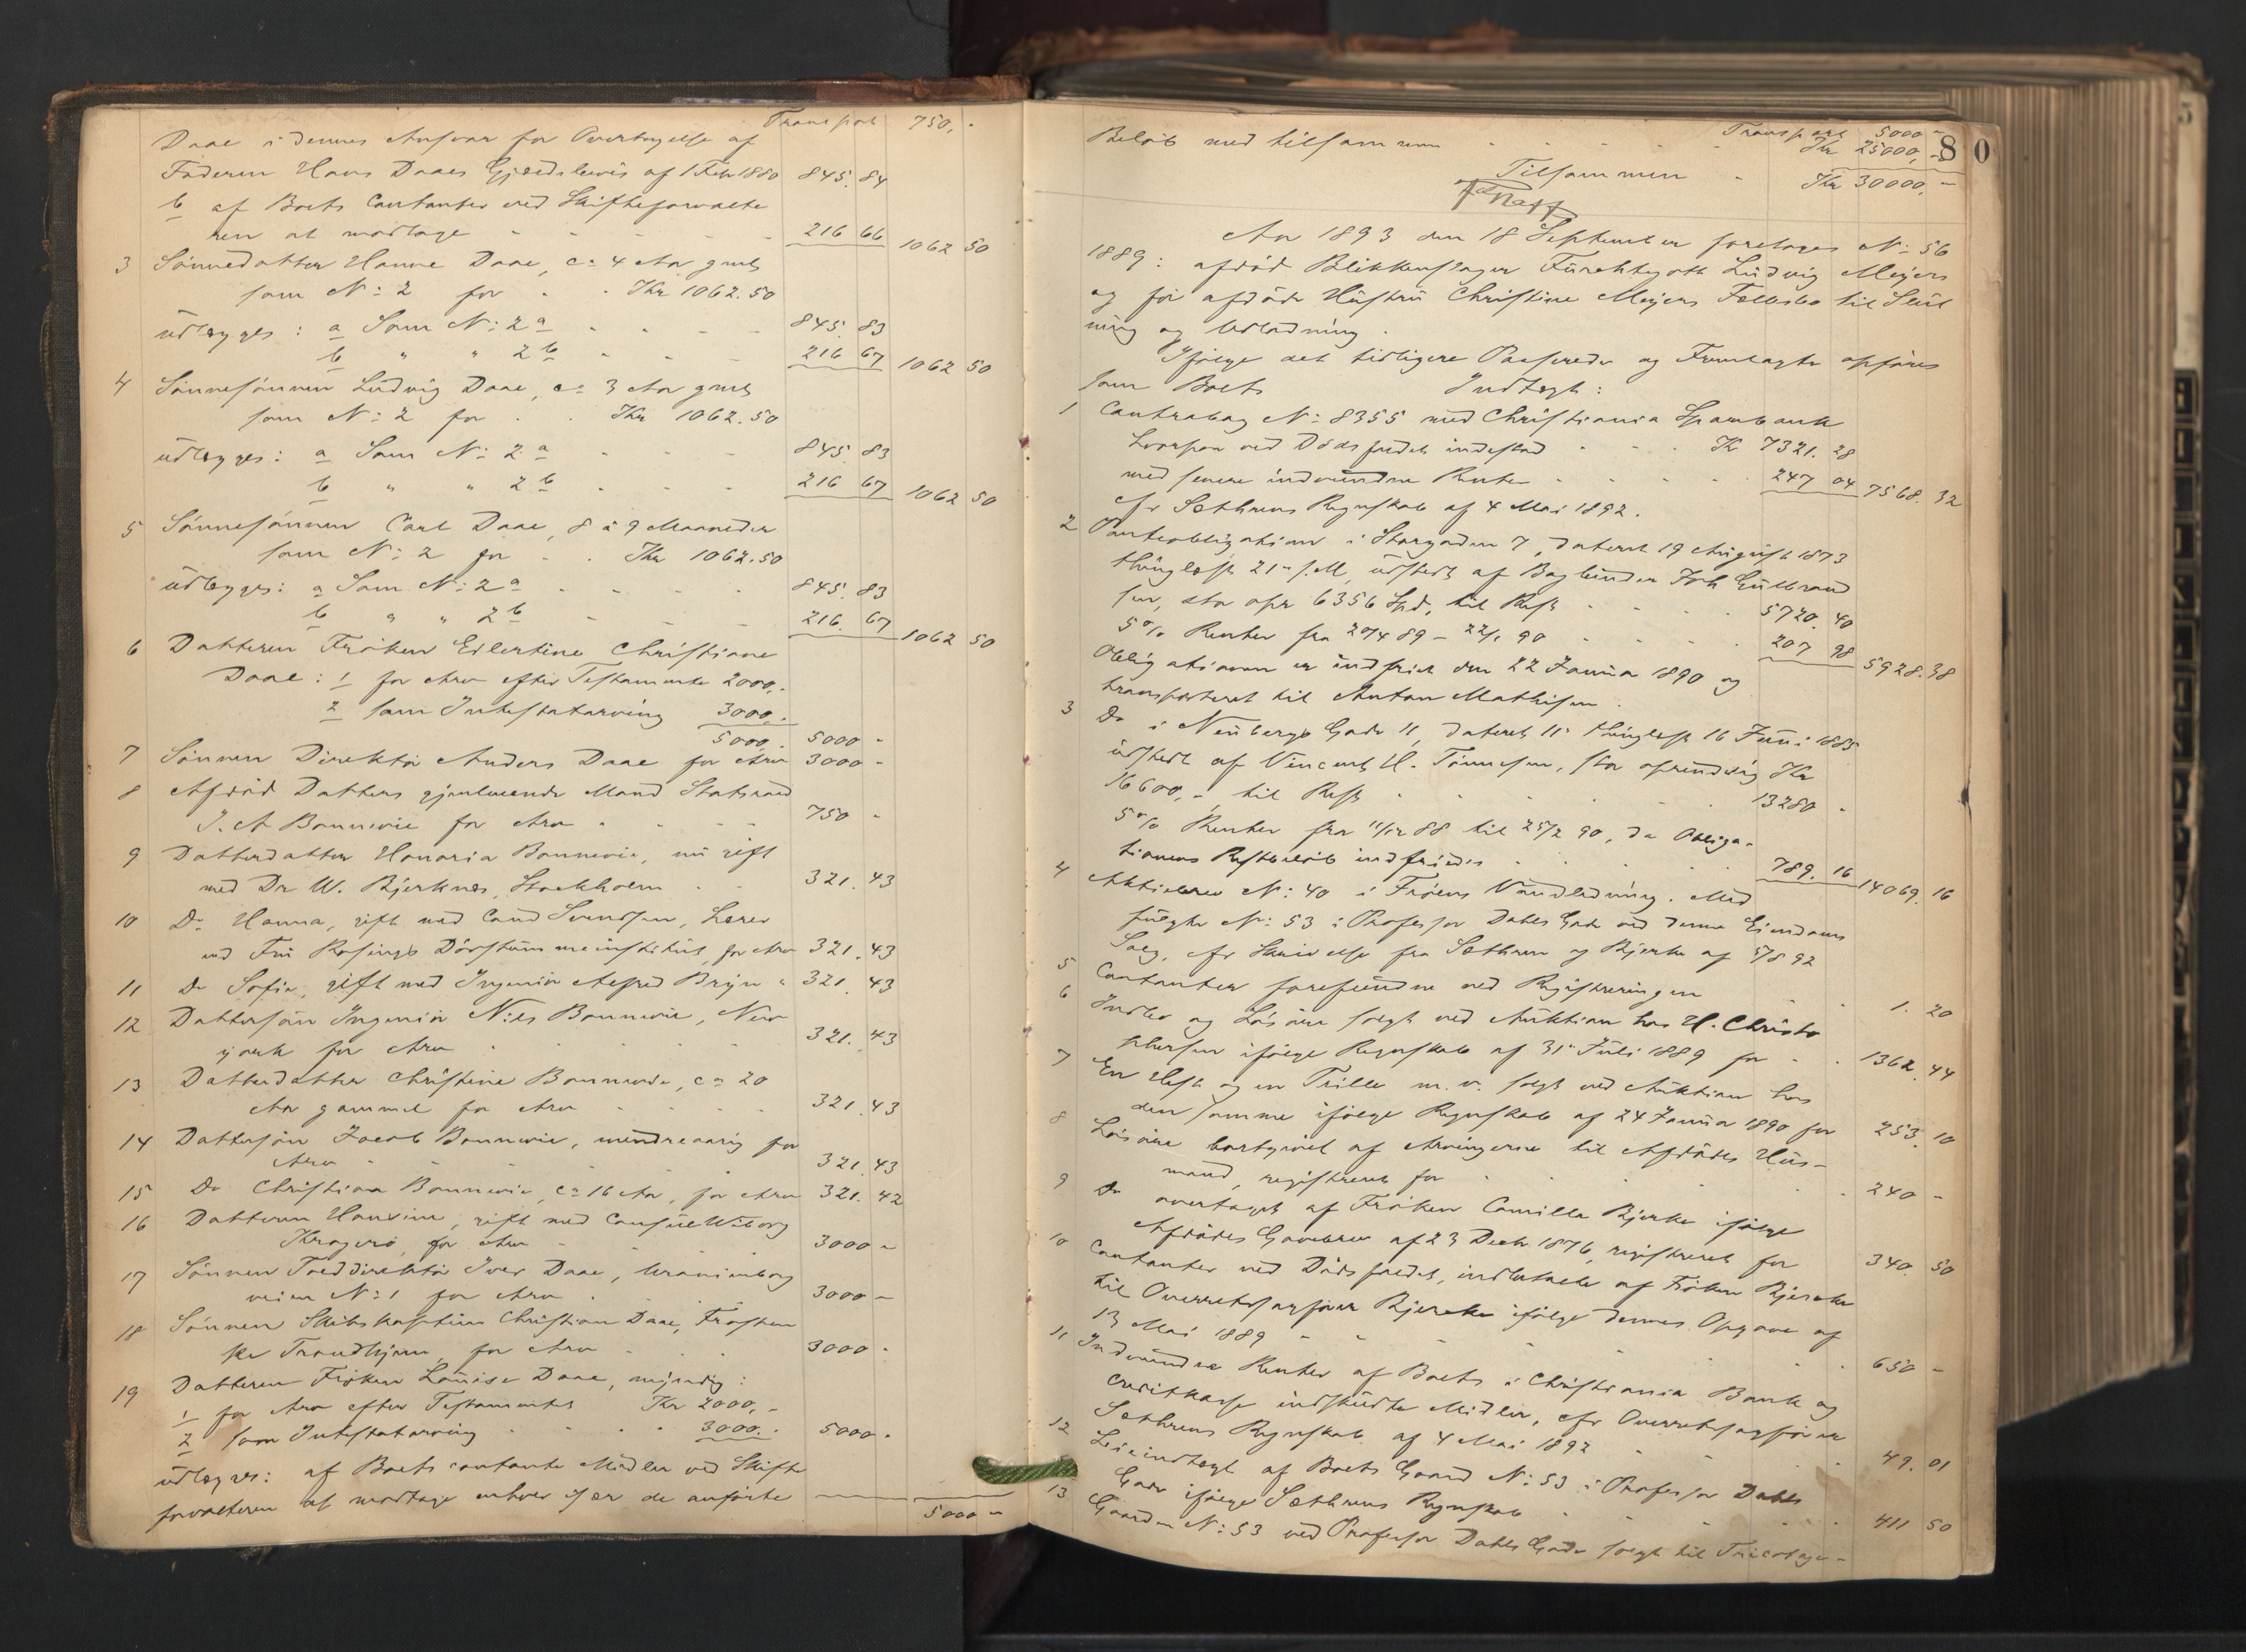 Transport 750,-
Daae i dennes Ansvar for Overtagelse af
Faderen Hans Daaes Gjældsbevis af 1 Febr 1880 845. 84
b af Boets Contanter ved Skifteforvalte
ren at modtage - - - 216 66 1062 50
3 Sønnedatter Hanne Daae, ca 4 Aar gml
som No: 2 for - - Kr 1062.50
udlægges: a Som No: 2 a - - - 845. 83
b " " 2 b - - - 216 67 1062 50
4 Sønnesønnen Ludvig Daae, ca 3 Aar gml
som No: 2 for - - Kr 1062.50
udlægges: a Som No: 2 a - - - 845. 83
b " " 2 b - - - 216 67 1062 50
5 Sønnesønnen Carl Daae, 8 à 9 Maaneder
som No: 2 for - - Kr 1062.50
udlægges: a Som No: 2 a - - - 845. 83
b " " 2 b - - - 216. 67 1062 50
6 Datteren Frøken Eilertine Christiane
Daae: 1 for Arv efter Testamente 2000,-
2 som Intestatarving 3000,-
5000,- 5000 -
7 Sønnen Direktør Anders Daae for Arv 3000 -
8 Afdød Datters gjenlevende Mand Statsraad
J. A Bonnevie for Arv - - - 750 -
9 Datterdatter Honoria Bonnevie, nu gift
med Dr W. Bjerknes, Stockholm - - 321. 43
10 Do Hanna, gift med Cand Svendsen, Lærer
ved Fru Rosings Døvstummeinstitut, for Arv 321. 43
11 Do Sofie, gift med Ingeniør Alfred Bryn " 321. 43
12 Dattersøn Ingeniør Niels Bonnevie, New
york for Arv - - - 321. 43
13 Datterdatter Christine Bonnevie, ca 20
Aar gammel for Arv - - - 321. 43
14 Dattersøn Jacob Bonnevie, mindreaarig for
Arv - - - 321. 43
15 Do Christian Bonnevie, ca 16 Aar, for Arv 321. 42
16 Datteren Hansine, gift med Consul Wiborg
Kragerø, for Arv - - - 3000 -
17 Sønnen Tolddirektør Iver Daae, Uranienborg
veien No: 1 for Arv - - - 3000 -
18 Sønnen Skibskaptein Christian Daae,
Trondhjem, for Arv - - - 3000 -
19 Datteren Frøken Louise Daae, myndig:
1 for Arv efter Testamentet Kr 2000,-
2 som Intestatarving - - - 3000,- 5000 -
udlægges: af Boets contante Midler ved Skifte
forvalteren at modtage enhver især de anførte
5000 -
80
Transport 5000 -
Beløb med tilsammen - - - Kr 25000,-
Tilsammen - Kr 30000,-
Aar 1893 den 18 September foretoges No: 56
1889: afdød Blikkenslager Ludvig Meyers
og før afdøde Hustru Christine Meyers Fællesbo til Slut
ning og Udlodning.
Ifølge det tidligere Passerede og Fremlagte opføres
som Boets Indtægt:
1 Contrabog No: 8355 med Christiania Sparebank
hvorpaa ved Dødsfaldet indestod - - Kr 7321. 28
med senere indvundne Renter - - - 247 04 7568. 32
cfr Sæthrens Regnskab af 4 Mai 1892.
2 Panteobligation i Storgaden 7, dateret 19 August 1873
thinglæst 21 s.M, udstedt af Bogbinder Joh Gulbrand
sen, stor opr 6356 Spd, til Rest - - - 5720. 40
5% Renter fra 20/4 89 - 22/1 90 - - - 207 98 5928. 38
Obligationen er indfriet den 22 Januar 1890 og
transporteret til Anton Mathisen.
3 Do i Neubergs Gade 11, dateret 11 thinglæst 16 Juni 1885
udstedt af Vincent H. Tønnesen, stor oprindelig Kr
16600,- til Rest - - - 13280 -
5% Renter fra 11/12 88 til 25/2 90, da Obliga-
tionens Restbeløb indfriedes - - - 789. 16 14069. 16
4 Aktiebrev No: 40 i Frøens Vandledning. Med
fulgte No: 53 i Professor Dahls Gade ved denne Eiendoms
Salg, cfr Skrivelse fra Sæthren og Bjerke af 5/8 92
5 Contanter forefundne ved Registreringen - - 1. 20
6 Indbo og Løsøre solgt ved Auktion hos H. Christo
phersen ifølge Regnskab af 31 Juli 1889 for - - 1362. 44
7 En Hest og en Trille m. v. solgt ved Auktion hos
den samme ifølge Regnskab af 24 Januar 1890 for 253. 10
8 Løsøre bortgivet af Arvingerne til Afdødes Hus-
mand, registreret for - - - 240 -
9 Do overtaget af Frøken Camilla Bjerke ifølge
Afdødes Gavebrev af 23 Decbr 1876, registreret for 340. 50
10 Contanter ved Dødsfaldet, indbetalt af Frøken Bjercke
til Overretssagfører Bjercke ifølge dennes Opgave af
13 Mai 1889 - - - 650 -
11 Indvundne Renter af Boets i Christiania Bank og
Creditkasse indskudte Midler, cfr Overretssagfører
Sæthrens Regnskab af 4 Mai 1892 - - - 49. 01
12 Leieindtægt af Boets Gaard No: 53 i Professor Dahls
Gade ifølge Sæthrens Regnskab - - - 411 50
13 Gaarden No: 53 ved Professor Dahls Gade solgt til Tricotage-